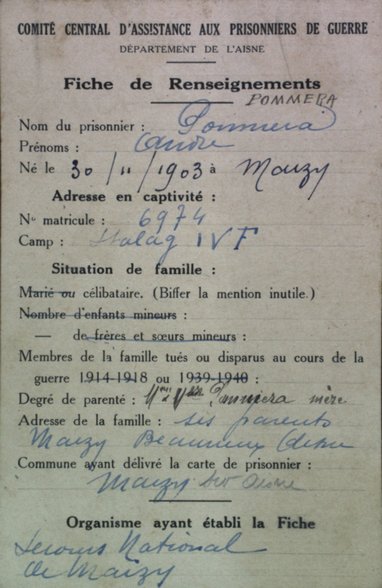 COMITÉ CENTRAL D'ASSISTANCE AUX PRISONNIERS DE GUERRE
DÉPARTEMENT DE L'AISNE
Fiche de Renseignements
POMMERA
Nom du prisonnier : Pommera
Prénoms : André
Né le 30/11/1903 à Maizy
Adresse en captivité :
N° matricule : 6974
Camp : Stalag IV F
Situation de famille :
Marié ou célibataire. (Biffer la mention inutile.)
Nombre d'enfants mineurs :
— de frères et sœurs mineurs :
Membres de la famille tués ou disparus au cours de la
guerre 1914-1918 ou 1939-1940 :
Degré de parenté : Pommera mère
Adresse de la famille : ses parents
Maizy Beaurieux Aisne
Commune ayant délivré la carte de prisonnier :
Maizy Aisne
Organisme ayant établi la Fiche
Secours National
de Maizy